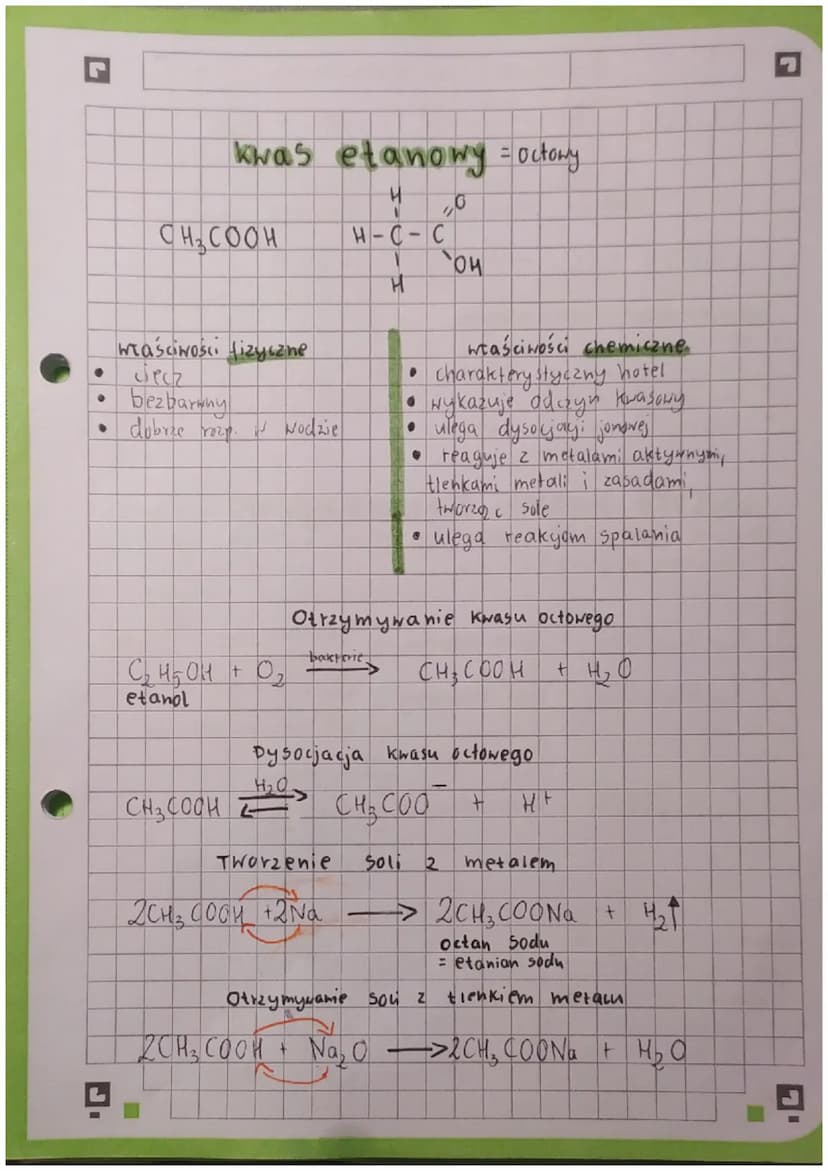 kwas etanowy = octowy
H
O
CH3COOH H - C - C
OH
H
właściwości fizyczne
• ciecz
• bezbarwny
• dobrze rozp. w wodzie
właściwości chemiczne
• charakterystyczny hotel
• wykazuje odczyn kwasowy
• ulega dysocjacji jonowej
• reaguje z metalami aktywnymi,
tlenkami metali i zasadami,
tworząc sole
• ulega reakcjom spalania
Otrzymywanie kwasu octowego
C2H5OH + O2 bakterie → CH3COOH + H2O
etanol
Dysocjacja kwasu octowego
CH3COOH H2O ⇄ CH3COO⁻ + H+
Tworzenie soli z metalem
2CH3COOH +2Na → 2CH3COONa + H2↑
octan sodu
= etanian sodu
Otrzymywanie soli z tlenkiem metalu
2CH3COOH + Na2O → 2CH3COONa + H2O